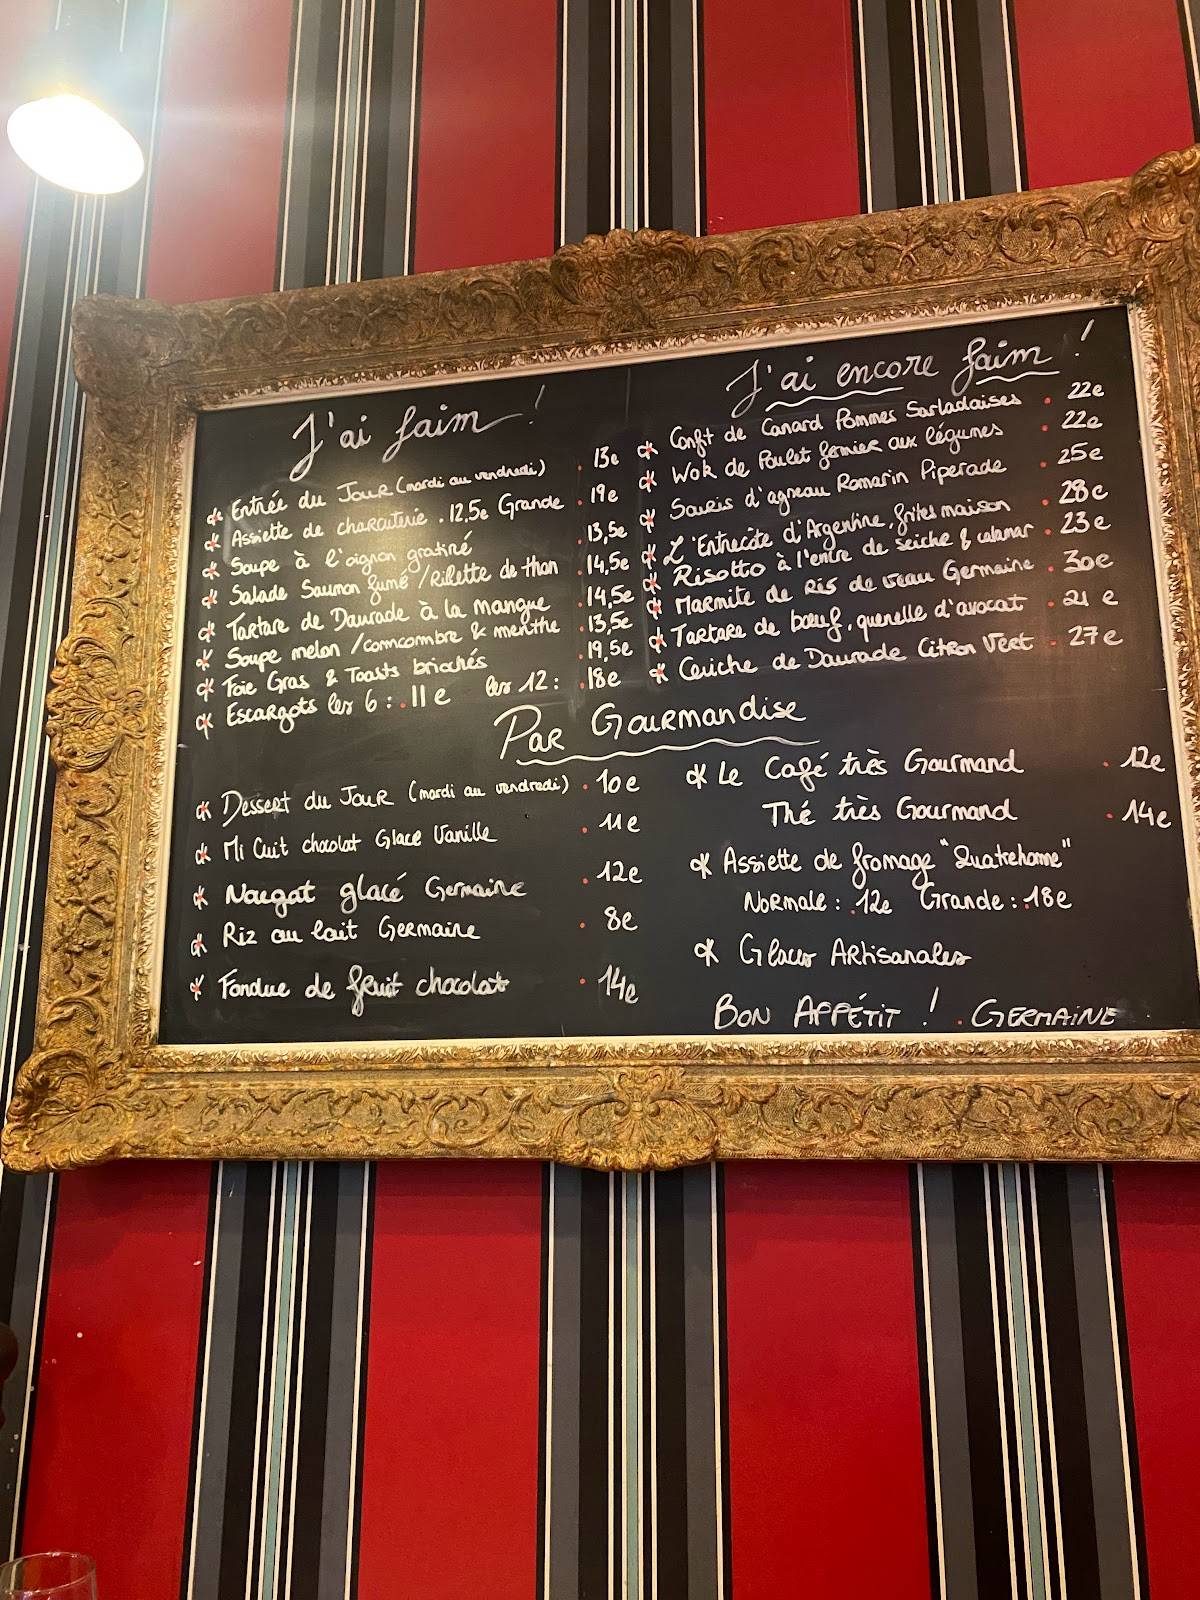 J'ai faim !
Entrée du Jour (mardi au vendredi) . 13e
Assiette de charcuterie . 12,5e Grande . 19e
Soupe à l'oignon gratiné . 13,5e
Salade Saumon fumé / Rillette de thon . 14,5e
Tartare de Daurade à la mangue . 14,5e
Soupe melon / comcombre & menthe . 13,5e
Foie Gras & Toasts briochés . 19,5e
Escargots les 6 : . 11e les 12 : . 18e
J'ai encore faim !
Confit de Canard Pommes Sarladaises . 22e
Wok de Poulet fermier aux légumes . 22e
Souris d'agneau Romarin Piperade . 25e
L'Entrecôte d'Argentine, frites maison . 28e
Risotto à l'encre de seiche & calamar . 23e
Marmite de Ris de veau Germaine . 30e
Tartare de bœuf, quenelle d'avocat . 21e
Ceviche de Daurade Citron Vert . 27e
Par Gourmandise
Dessert du Jour (mardi au vendredi) . 10e
Mi Cuit chocolat Glace Vanille . 11e
Nougat glacé Germaine . 12e
Riz au lait Germaine . 8e
Fondue de fruit chocolat . 14e
Le Café très Gourmand . 12e
Thé très Gourmand . 14e
Assiette de fromage "Quatrehomme"
Normale : . 12e Grande : . 18e
Glaces Artisanales
Bon Appétit ! . Germaine